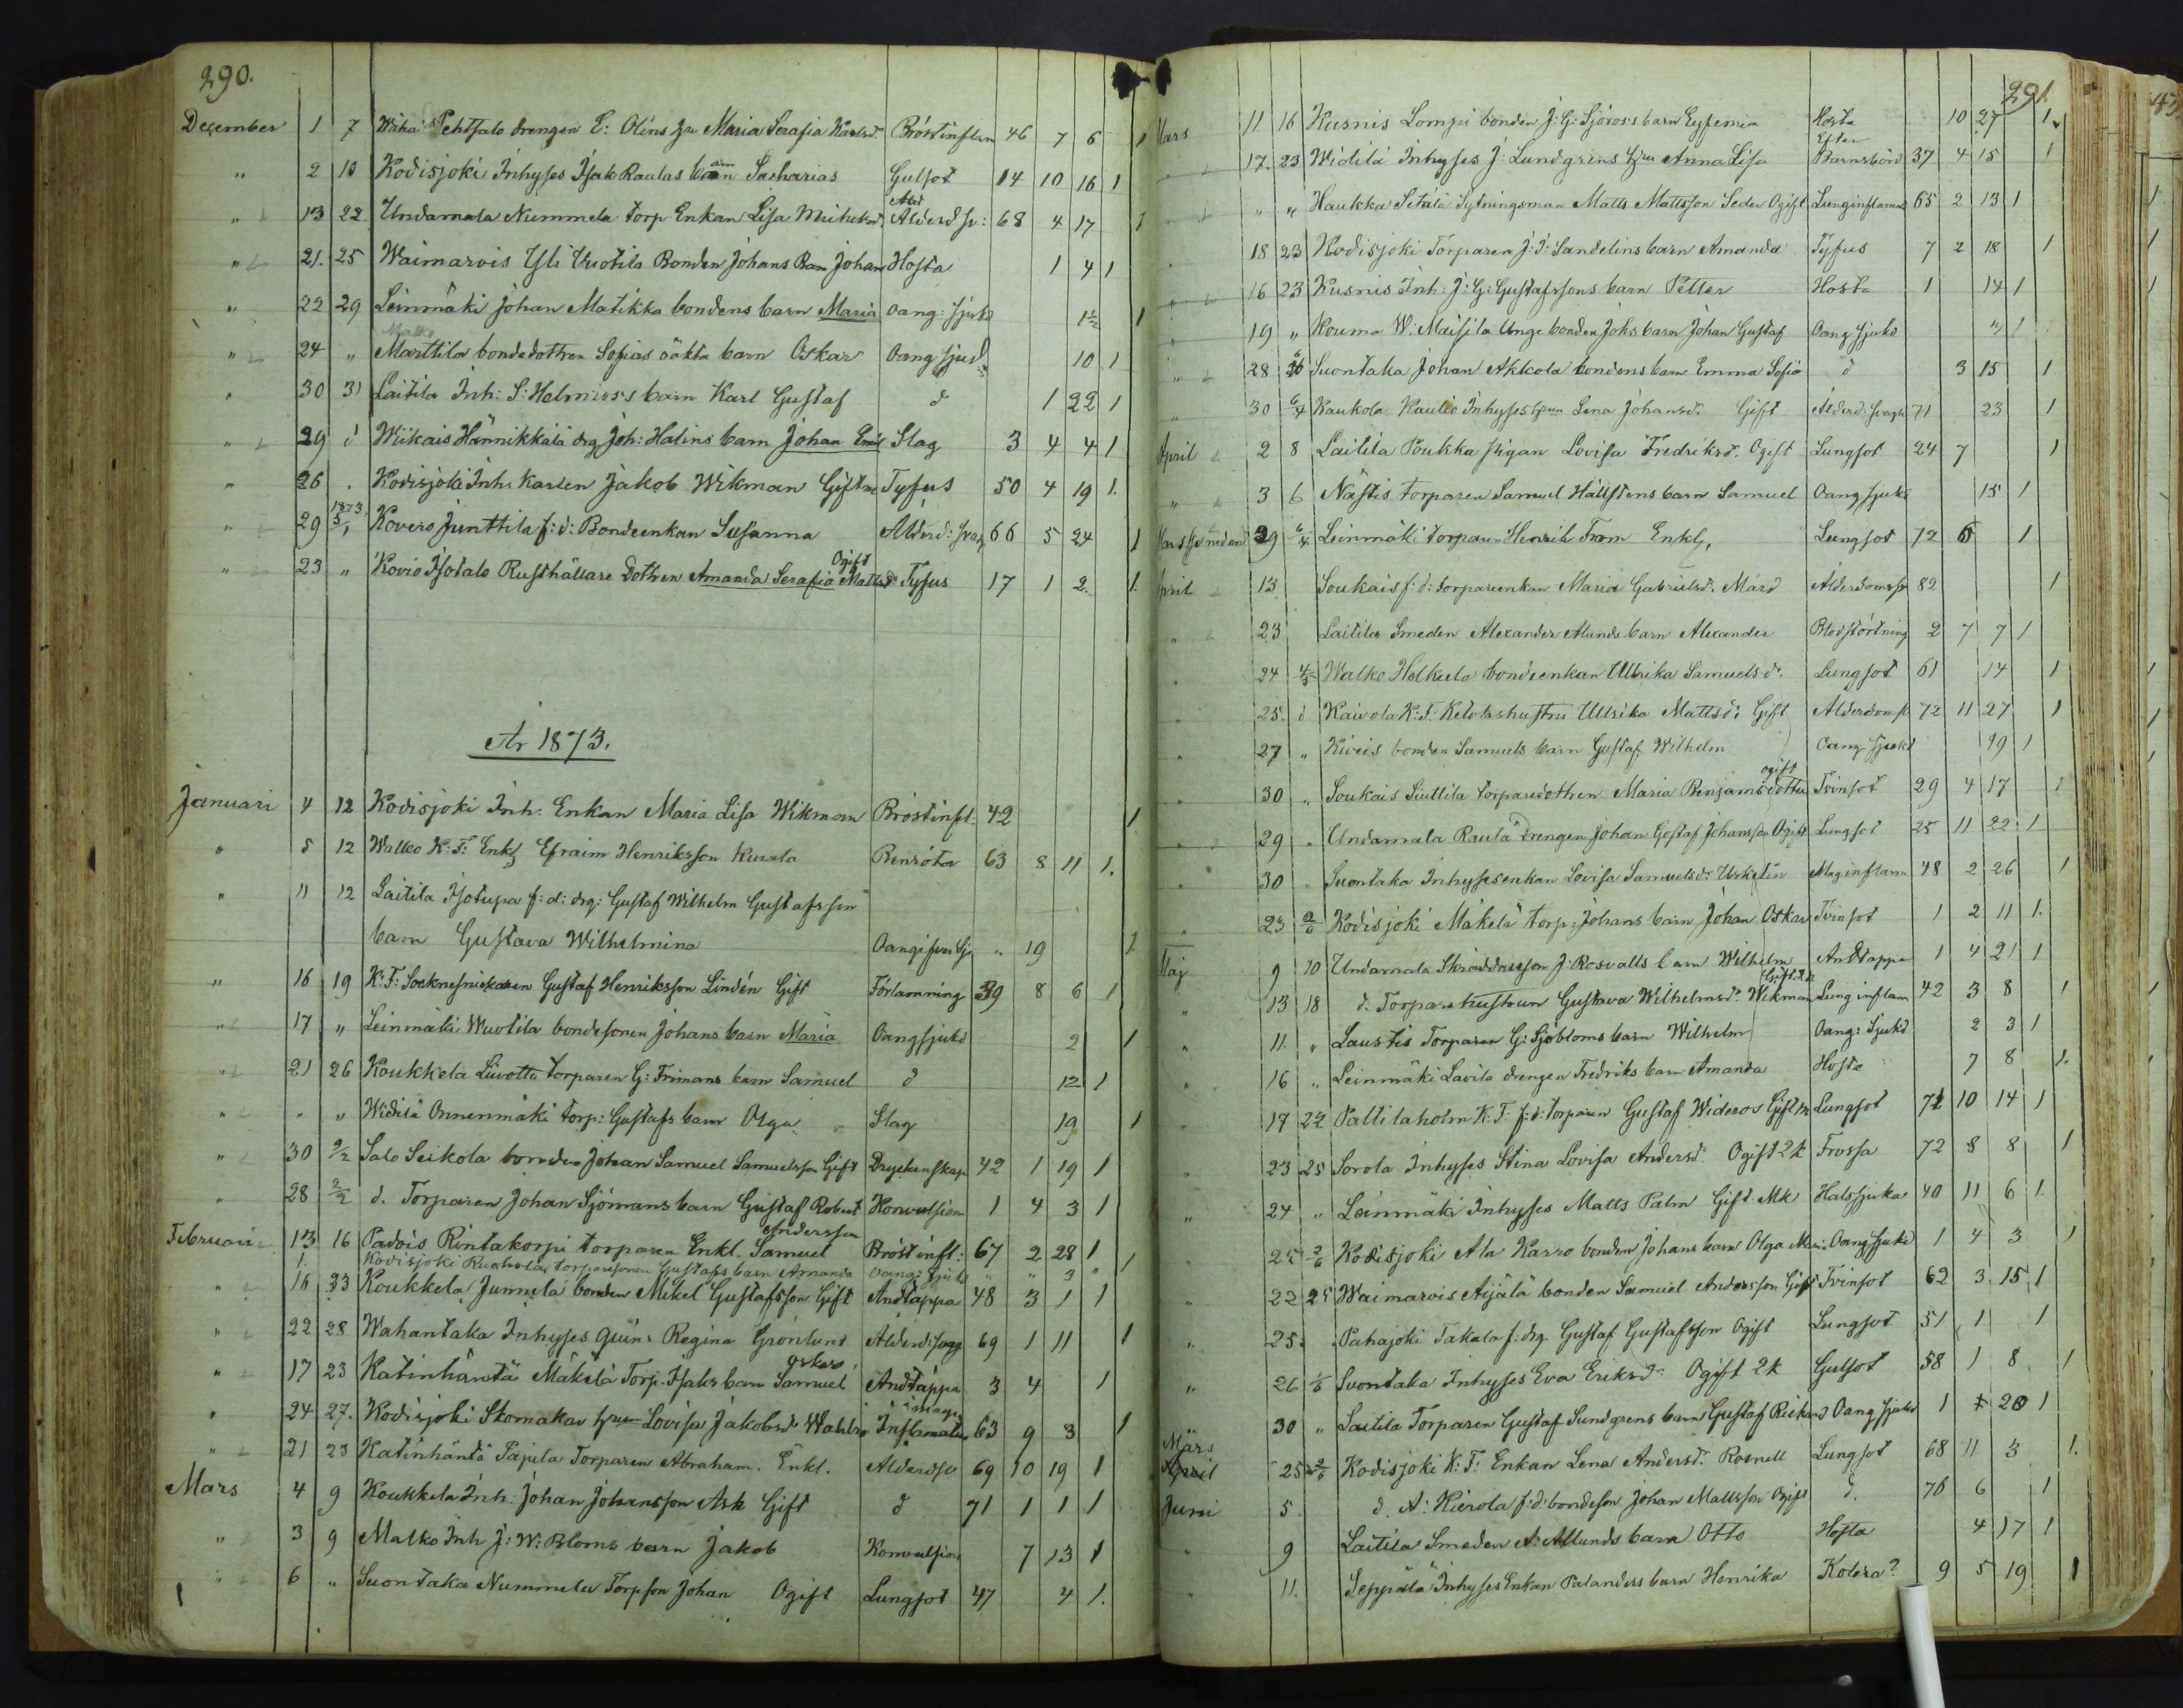 290.
December 1 7 Pehtsalo drengen E: Olins hru Maria Serafia Karlsd Bröstinflam 46 7 6 1
" 2 10 Kodisjoki Inhyses Isak Raulas barn Sacharias Gulsot 14 10 16 1
" 13 22 Undamala Nummela torp Enkan Lisa Michelsd. Alderd sv: 68 4 17 1
" 21. 25 Waimarois Yli Vuotila Bonden Johans Barn Johan Hosta 1 4 1
" 22 29 Leinmäki Johan Matikka bondens barn Maria oang: sjukd 1½ 1
Malko
" 24 " Marttila bondedottren Sofias oäkta barn Oskar Oang sjukd 10 1
" 30 31 Laitila Inh: S: Helmross's barn Karl Gustaf d 1 22 1
" 29 d Wiikais Hännikkälä drg Joh: Halins barn Johan Emil Slag 3 4 4 1
" 26 . Kodisjoki Inh: Karlen Jakob Wikman Gift Tyfus 50 4 19 1.
1873
" 29 5/1 Kovero Junttila f: d: Bondeenkan Susanna Alderd: svag 66 5 24 1
Ogift
" 23 " Kovio Isotalo Rusthållare Dottren Amanda Serafia Mattsdr Tyfus 17 1 2. 1.
År 1873.
Januari 4 12 Kodisjoki Inh. Enkan Maria Lisa Wikman Bröstinfl. 42 1
" 5 12 Walko K. T: Enkl Efraim Henriksson Kurala Benröta 63 8 11 1.
" 11 12 Laitila Isotupa f: d: drg: Gustaf Wilhelm Gustafsson
barn Gustava Wilhelmina " 19 1
" 16 19 K: T: Socknesnickaren Gustaf Henriksson Lindén Gift Förlamning 39 8 6 1
" 17 " Leinmäki Wuotila bondesonen Johans barn Maria Oangsjukd 2 1
" 21 26 Koukkela Liivottu torparen G: Frimans barn Samuel d 12 1
" " " Widilä Onnenmäki torp: Gustafs barn Olga Slag 19 1
" 30 2/2 Salo Seikola bonden Johan Samuel Samuelsson Gift Dryckenskap 42 1 19 1
" 28 2/2 d. Torparen Johan Sjömans barn Gustaf Robert Konvulsion 1 4 3 1
Andersson
Februari 13 16 Padois Rintakorpi torparen Enkl. Samuel Bröst infl: 67 2 28 1
1. Kodisjoki torparsonen Gustafs barn Amanda oang: sjukd " " 3 "
" 16 23 Koukkela Junnila bonden Mikel Gustafsson Gift Andtäppa 48 3 1 1
" 22 28 Wahantaka Inhyses qvin: Regina Grönlund Alderd: svag 69 1 11 1
Oskar
" 17 23 Katinhäntä Mäkelä Torp. Isaks barn Samuel Andtäppa 3 4 1
i magen
" 24 27. Kodisjoki Skomakar hru Lovisa Jakobsd Wahlro Inflamation 63 9 3 1
" 21 23 Katinhäntä Pajula Torparen Abraham. Enkl. Alderdsv 69 10 19 1
Mars 4 9 Koukkela Inh: Johan Johansson Ask Gift d 71 1 1 1
" 3 9 Malko Inh J: W: Bloms barn Jakob Konvulsion 7 13 1
" 6 " Suontaka Nummela Torpson Johan Ogift Lungsot 47 4 1.
291.
Mars 11 16 Kusnis Lompi bonden J: G: Sjöros's barn Eufemia Hosta 10 27 1
Efter
" 17. 23 Widilä Inhyses J: Lundgrens hru Anna Lisa Barnsbörd 37 4 15 1
" " " Haukka Setälä Sytningsman Matts Mattsson Seder Ogift Lunginflamat 65 2 13 1
18 23 Kodisjoki Torparen J: J: Sandelins barn Amanda Tyfus 7 2 18 1
" 16 23 Kusnis Inh: J: G: Gustafssons barn Petter Hosta 1 14 1
" 19 " Kouma W: Maisila Unge bonden Johs barn Johan Gustaf Oang sjukd " 1
" 28 Suontaka Johan Akkola bondens barn Emma Sofia d 3 15 1
" 30 6/4 Kaukola Kaulio Inhyses hrun Lena Johansd: Gift Alderd: svagh 71 23 1
April 2 8 Laitila Poukka pigan Lovisa Fredriksd. Ogift Lungsot 24 7 1
" 3 6 Nästis torparen Samuel Hällstens barn Samuel Oang sjukd 15 1
29 6/4 Leinmäki torparen Henrik From Enkl, Lungsot 72 6 1
April 13 Soukais f: d: torpareenkan Maria Gabrielsd. Mård Alderdomssv 82 1
" 23 Laitila Smeden Alexander Alunds barn Alexander Blodstörtning 2 7 7 1
" 24 4/5 Walko Holkeela bondeenkan Ullrika Samuelsd. Lungsot 61 14 1
" 25. d Kaivola K: T: Ketolashustru Ullrika Mattsd: Gift Alderdomssv 72 11 27 1
" 27 " Kiveis bonden Samuels barn Gustaf Wilhelm Oang sjukd 19 1
ogift
" 30 " Soukais Siuttila torparedottren Maria Benjamsdotter Tvinsot 29 4 17 1
" 29 " Undamala Raula drengen Johan Gustaf Johansson Ogift Lungsot 25 11 22 1
" 30 " Suontaka Inhysesenkan Lovisa Samuelsdr Urketin Maginflam 48 2 26 1
" 23 2/6 Kodisjoki Mäkelä torp: Johans barn Johan Oskar Tvinsot 1 2 11 1.
Maj 9 10 Undamala Skräddaresson J: Rosvalls barn Wilhelm Andtäppa 1 4 21 1
Gift 2 k
" 13 18 d. Torparehustrun Gustava Wilhelmsd. Wikman Lung inflam 42 3 8 1
" 11. " Laustis Torparen G: Sjöbloms barn Wilhelm Oang: Sjukd 2 3 1
" 16 " Leinmäki Lavila drengen Fredriks barn Amanda Hosta 7 8 1.
" 17 22 Paltilaholm K: T: f: d: torparen Gustaf Wideros Gift Lungsot 72 10 14 1
" 23 25 Sorola Inhyses Stina Lovisa Andersd. Ogift 2 k Frossa 72 8 8 1
" 24 " Leinmäki Inhyses Matts Palm Gift. Mk Halssjuka 40 11 6 1.
" 25 2/6 Kodisjoki Ala Karro bonden Johans barn Olga Oang Sjukd 1 4 3 1
" 22 25 Waimarois Aijälä bonden Samuel Andersson Gift Tvinsot 62 3 15 1
" 25. Pahajoki Takala f: drg. Gustaf Gustafsson Ogift Lungsot 51 1 1
" 26 1/6 Suontaka Inhyses Eva Eriksdr Ogift 2 k Gulsot 58 1 8 1
" 30 " Laitila Torparen Gustaf Sundgrens barn Gustaf Rickard Oang sjukd 1 20 1
Mars
April 25 2/6 Kodisjoki K: T: Enkan Lena Andersd. Rosnell Lungsot 68 11 3 1.
Juni 5 d. A: Hierola f: d: bondeson Johan Mattsson Ogift d. 76 6 1
" 9 Laitila Smeden A: Allunds barn Otto Hosta 4 17 1
" 11. Seppälä Inhyses Enkan Palanders barn Henrika Kolera? 9 5 19 1